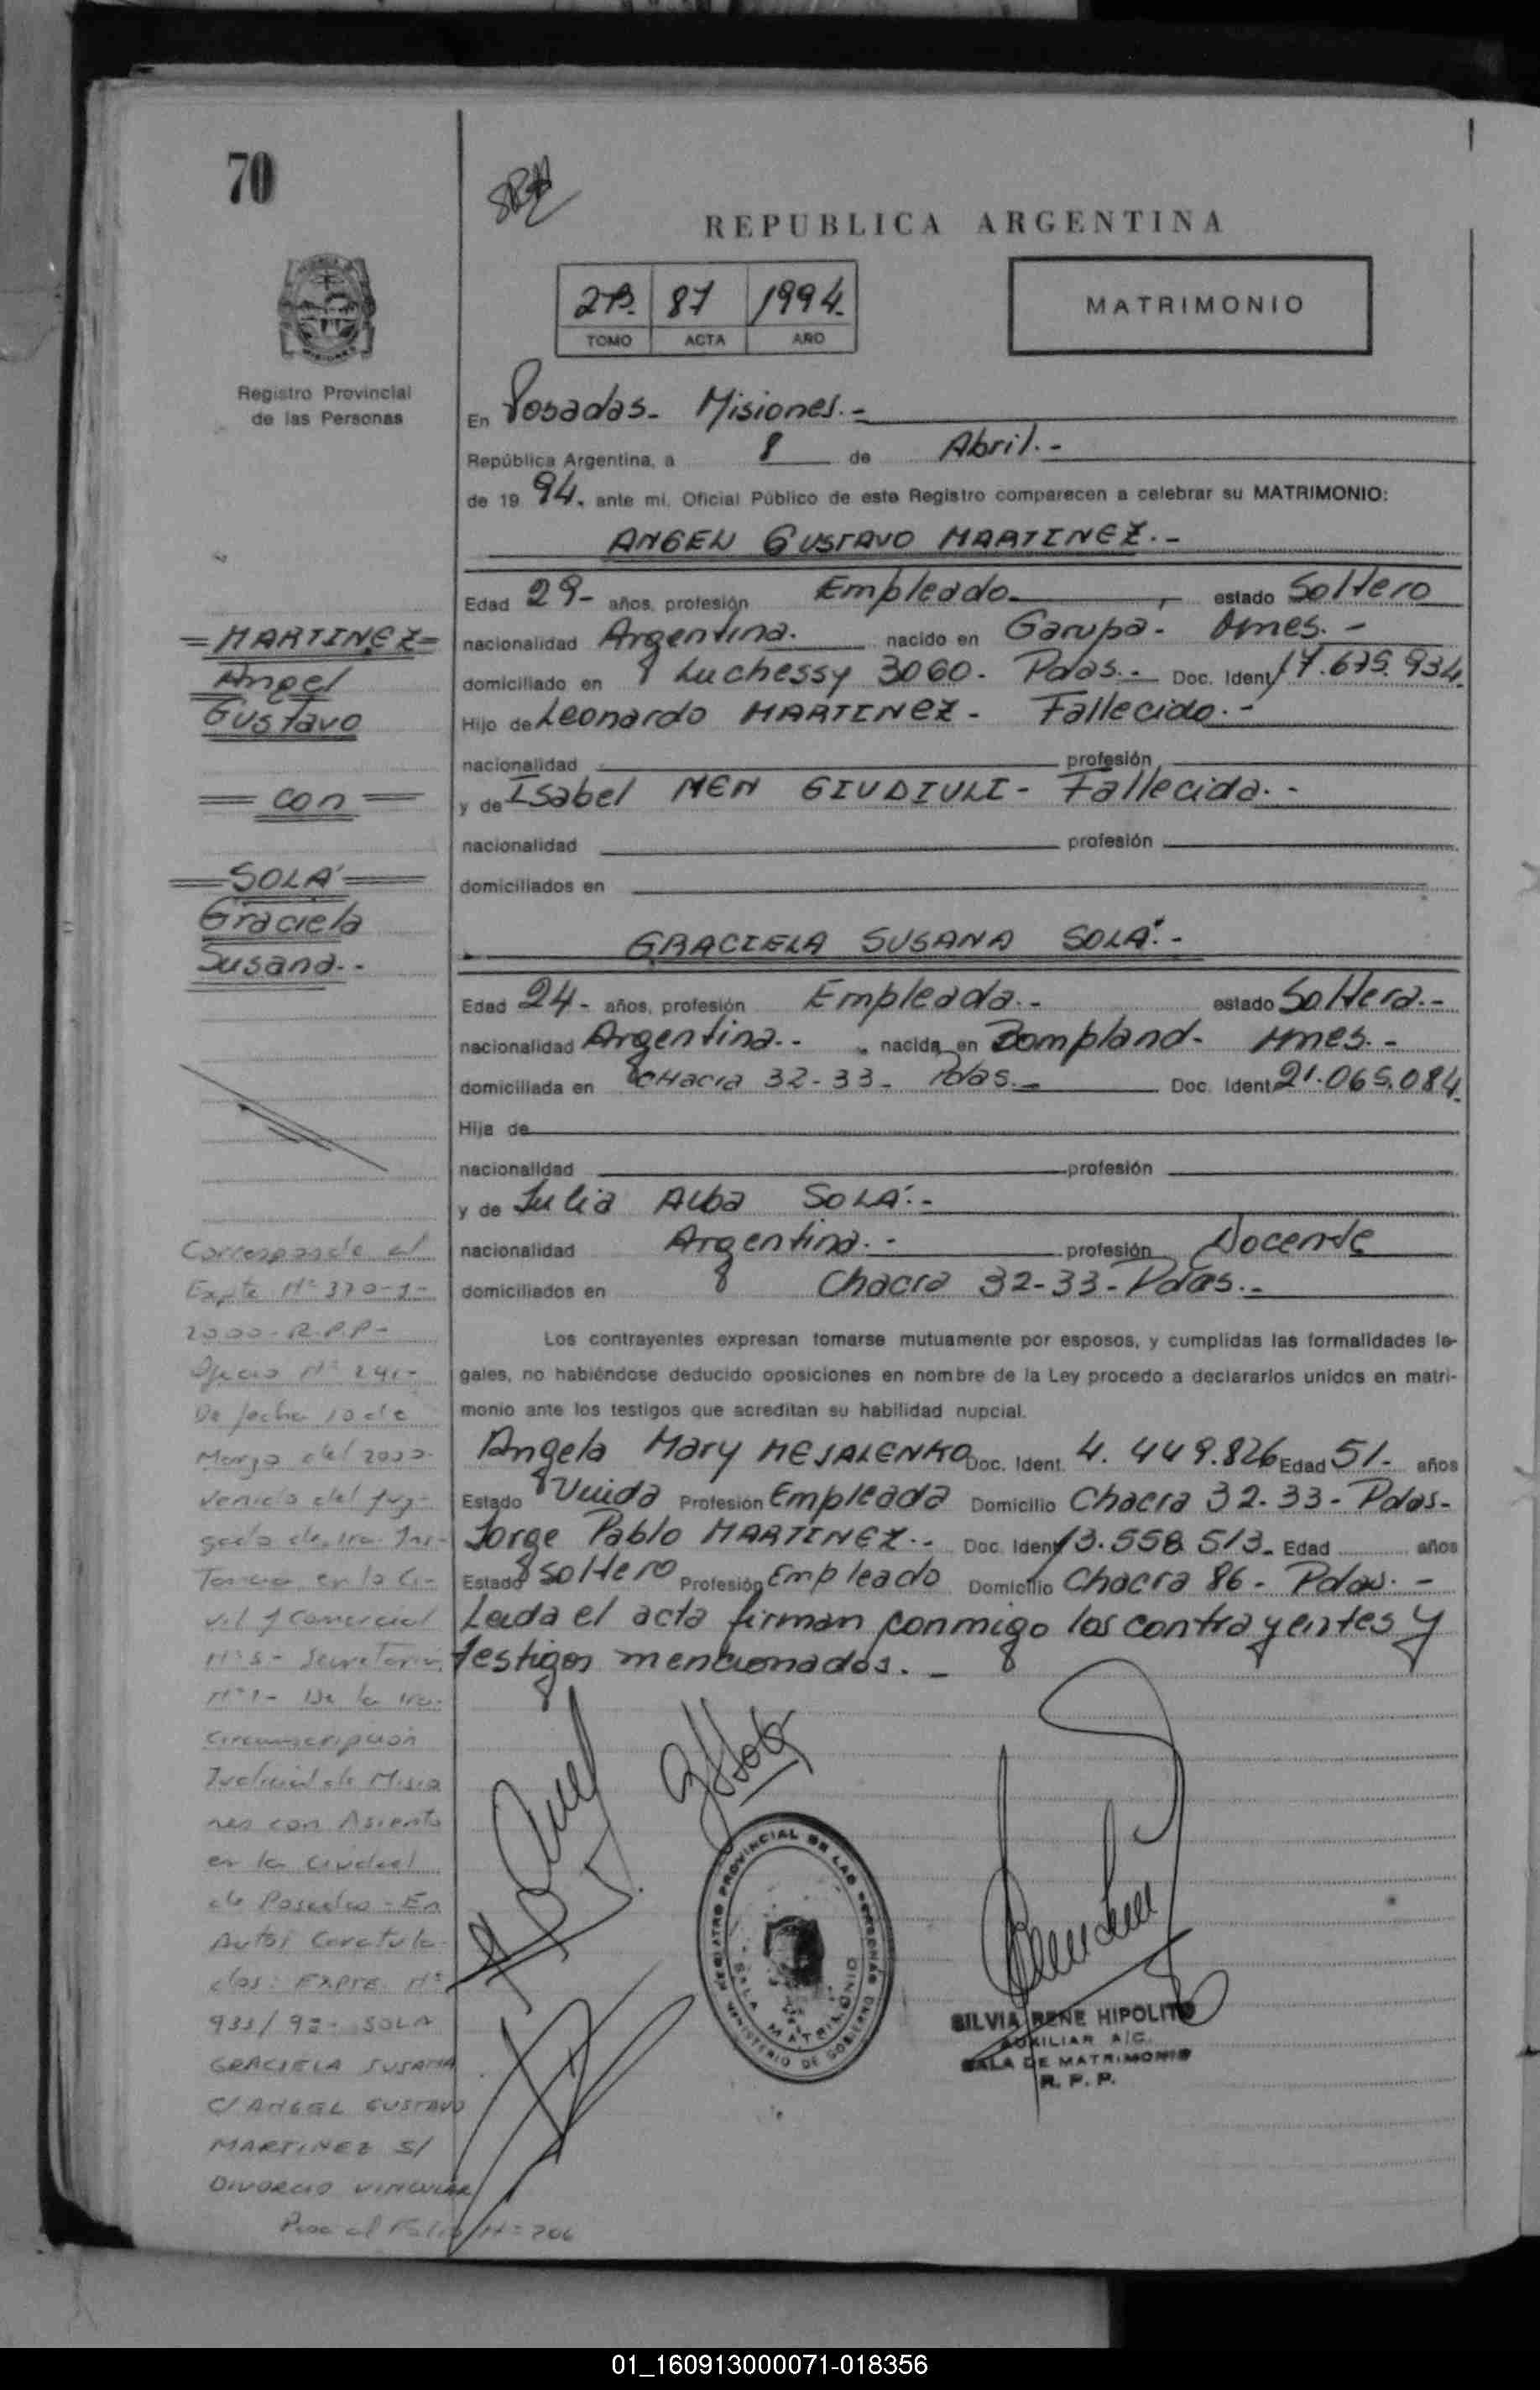 70
REPUBLICA ARGENTINA
2B. 87 1994.
TOMO ACTA AÑO
MATRIMONIO
MISIONES
Registro Provincial
de las Personas
En Posadas- Misiones.-
República Argentina, a 8 de Abril.-
de 19 94. ante mi, Oficial Público de este Registro comparecen a celebrar su MATRIMONIO:
ANGEL GUSTAVO MARTINEZ.-
Edad 29- años, profesión Empleado- estado Soltero
nacionalidad Argentina. nacido en Garupa- Mnes.-
domiciliado en Luchessy 3060- Pdas.- Doc. Ident. 17.675.934.
Hijo de Leonardo MARTINEZ- Fallecido.-
nacionalidad profesión
y de Isabel MEN GIUDIULI- Fallecida.-
nacionalidad profesión
domiciliados en
GRACIELA SUSANA SOLÁ.-
Edad 24- años, profesión Empleada.- estado Soltera.-
nacionalidad Argentina.- nacida en Bompland- Mnes.-
domiciliada en Chacra 32-33- Pdas.- Doc. Ident. 21.065.084.
Hija de
nacionalidad profesión
y de Julia Alba SOLÁ.-
nacionalidad Argentina.- profesión Docente
domiciliados en Chacra 32-33- Pdas.-
Los contrayentes expresan tomarse mutuamente por esposos, y cumplidas las formalidades le-
gales, no habiéndose deducido oposiciones en nombre de la Ley procedo a declararlos unidos en matri-
monio ante los testigos que acreditan su habilidad nupcial.
Angela Mary MEJALENKO Doc. Ident. 4.449.826 Edad 51- años
Estado Viuda Profesión Empleada Domicilio Chacra 32-33- Pdas-
Jorge Pablo MARTINEZ.- Doc. Ident. 13.558.513- Edad años
Estado soltero Profesión Empleado Domicilio Chacra 86- Pdas.-
Leida el acta firman conmigo los contrayentes y
testigos mencionados.-
REGISTRO PROVINCIAL DE LAS PERSONAS
SALA MATRIMONIO
MINISTERIO DE GOBIERNO
SILVIA RENE HIPOLITO
AUXILIAR A/C.
SALA DE MATRIMONIO
R. P. P.
=MARTINEZ=
Angel
Gustavo
=con=
=SOLÁ=
Graciela
Susana.-
Corresponde al
Expte Nº 370-J-
2000-R.P.P-
Oficio Nº 241-
De fecha 10 de
Marzo del 2000-
venido del Juz-
gado de 1ra. Ins-
Tancia en lo Ci-
vil y Comercial
Nº5- Secretaria
Nº1- De la 1ra.
Circunscripción
Judicial de Misio
nes con Asiento
en la ciudad
de Posadas-En
Autos Caratula
dos: EXPTE. Nº
933/98- SOLA
GRACIELA SUSANA
C/ ANGEL GUSTAVO
MARTINEZ S/
DIVORCIO VINCULAR
Pasa al Folio Nº 206
01_160913000071-018356